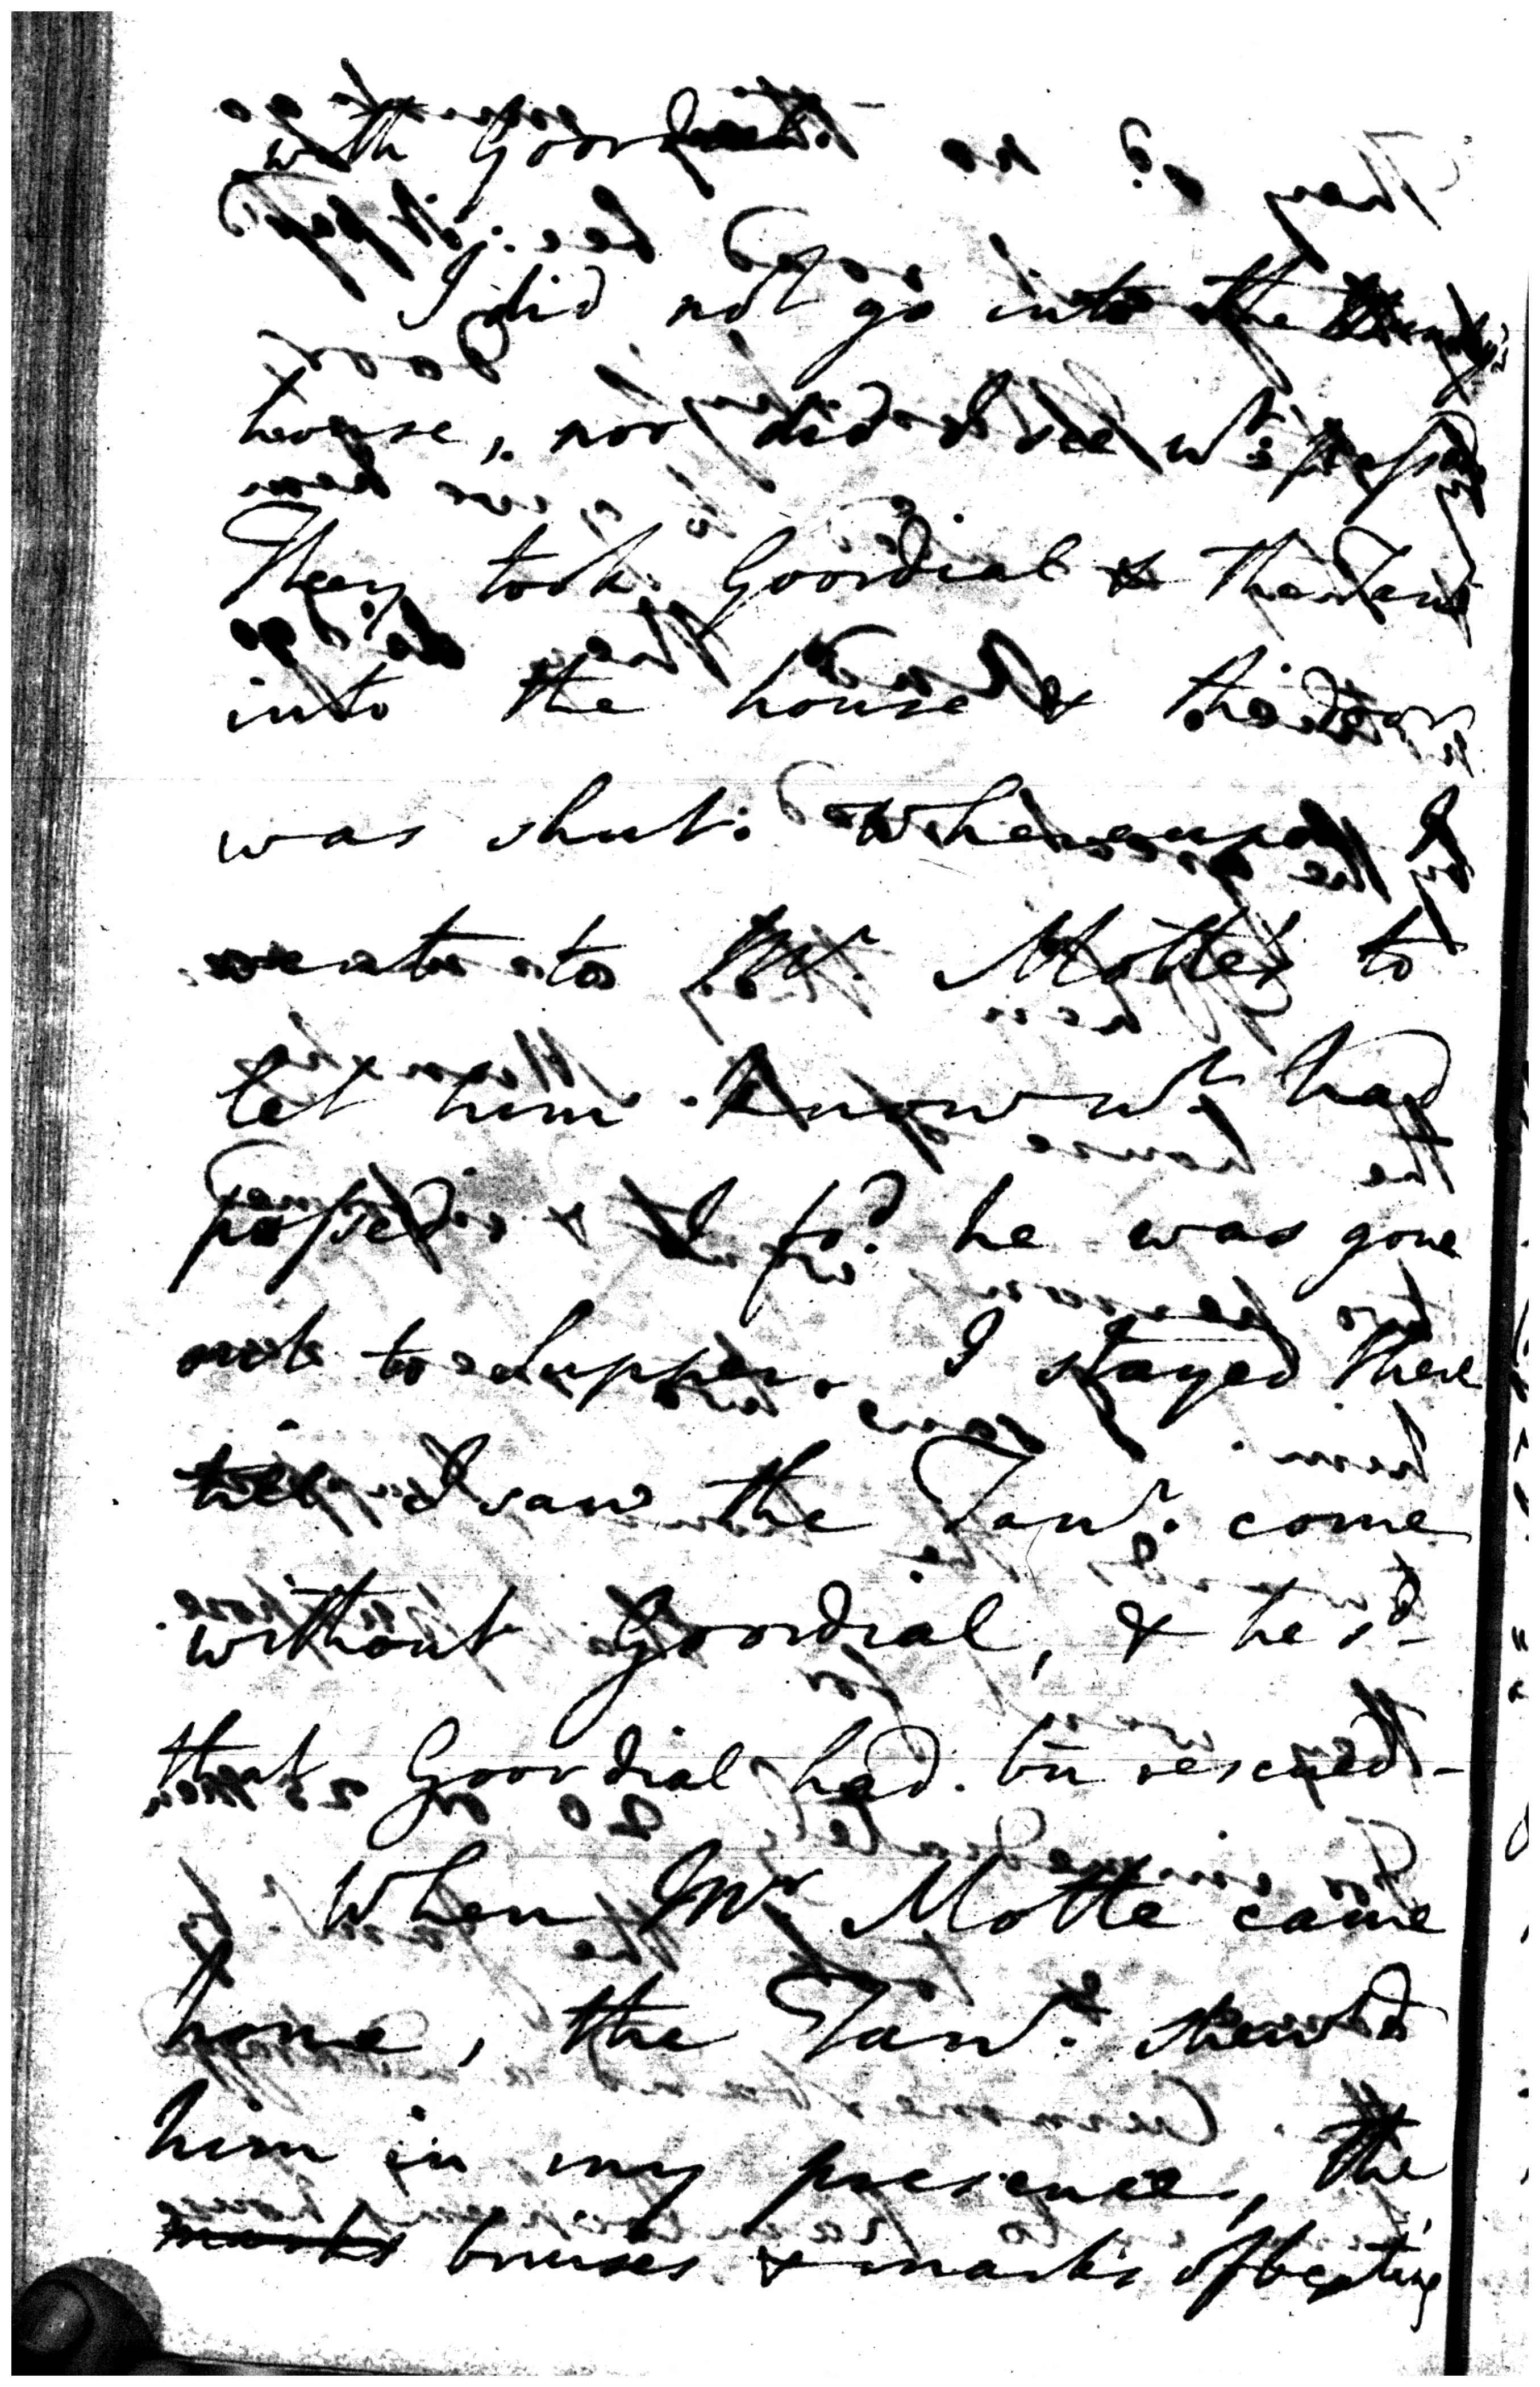 with Goordial.
I did not go into the
house, nor did I see wt. passed
They took Goordial & the Janr
into the house & the door
was shut. Whereupon I
went to Mr. Motte's to
let him know wt. had
passed & I fod. he was gone
out to supper. I stayed there
till I saw the Janr. come
without Goordial, & he sd.
that Goordial had bn rescued -
When Mr. Motte came
home, the Janr. shew'd
him in my presence, the
marks bruises & marks of beating